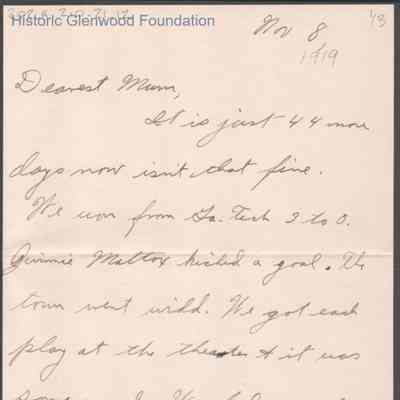 Historic Glenwood Foundation
Nov 8
'43
1919
Dearest Mum,
It is just 44 more
days now isn't that fine.
We won from Ga. Tech 3 to 0.
Jimmie Mattox kicked a goal. The
town went wild. We got each
play at the theater & it was